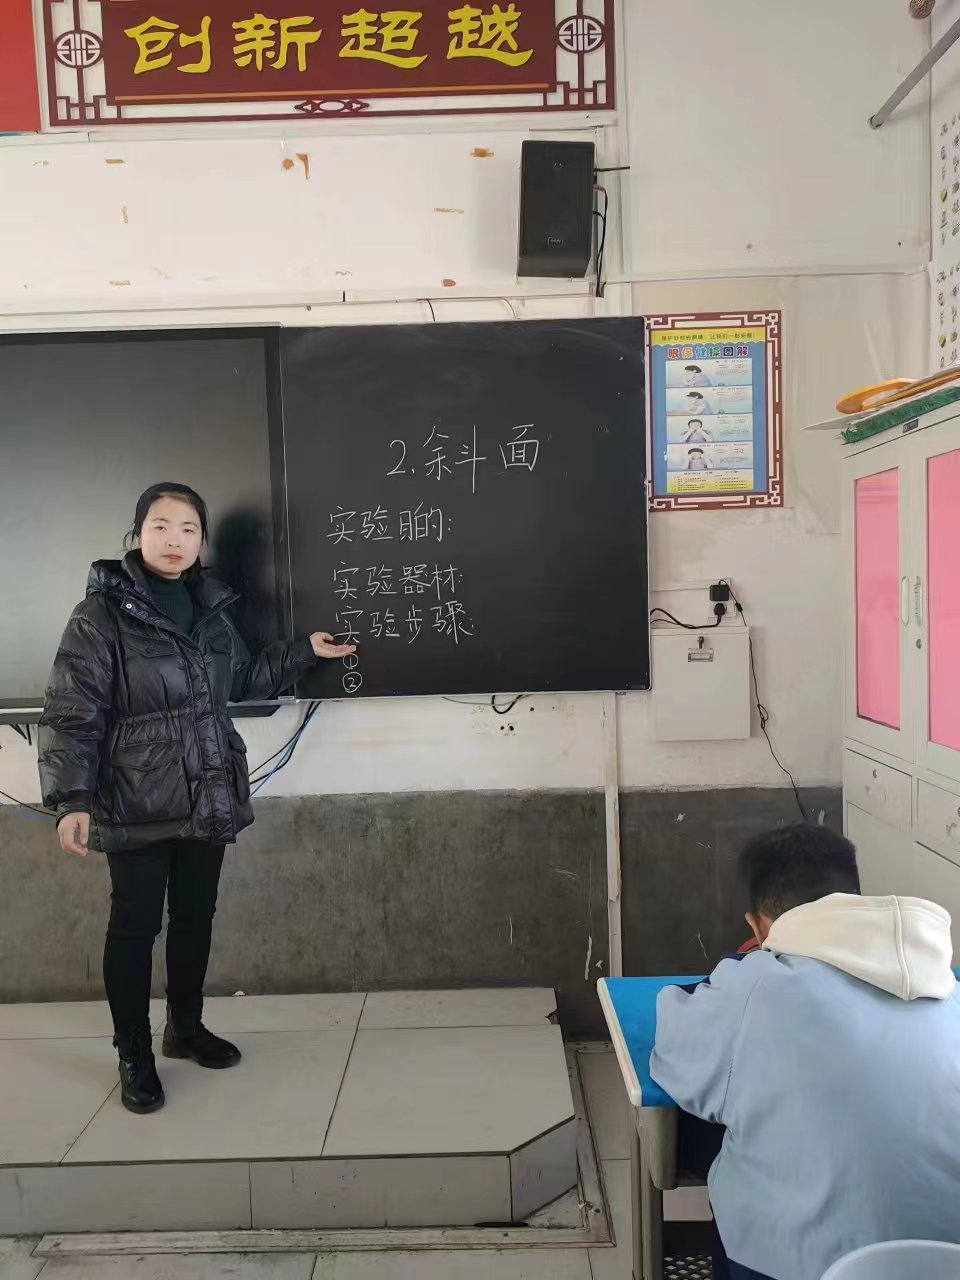 创新超越
眼保健操图解
2.斜面
实验目的:
实验器材:
实验步骤:
①
②